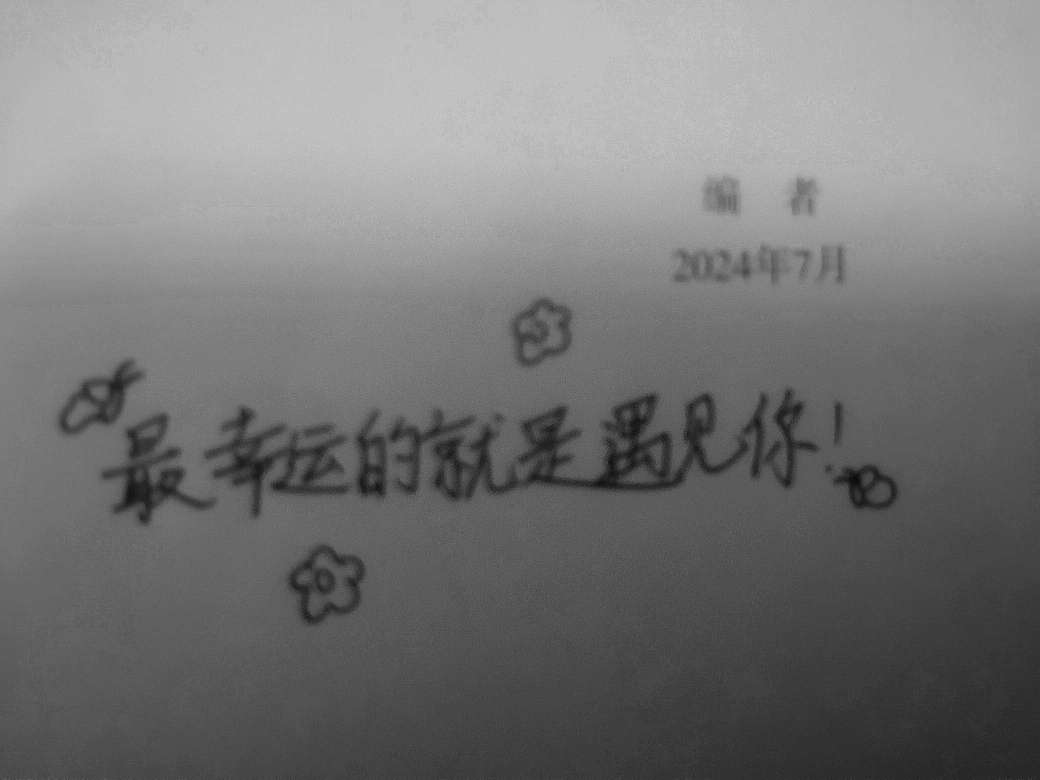 编 者
2024年7月
最幸运的就是遇见你!